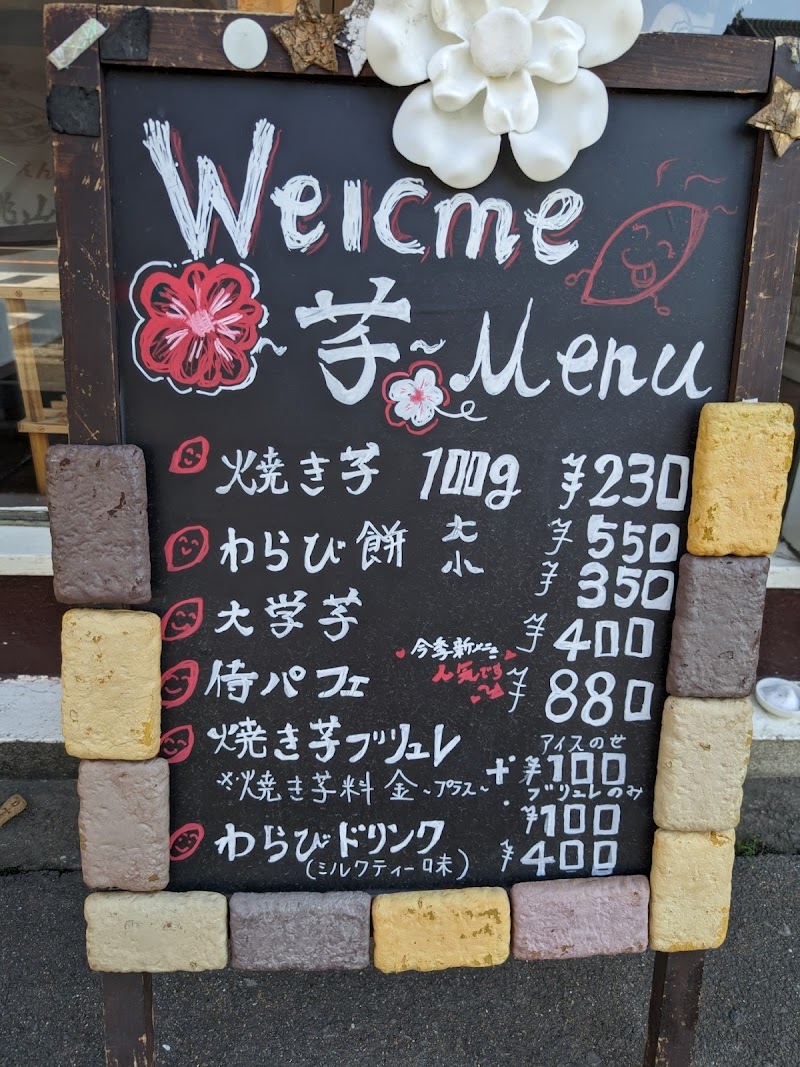 Welcme
芋~Menu
焼き芋 100g ¥230
わらび餅 大 ¥550
小 ¥350
大学芋 ¥400
今季新メニュー
人気です
侍パフェ ¥880
焼き芋ブリュレ
アイスのせ
※焼き芋料金~プラス~ + ¥100
ブリュレのみ
¥100
わらびドリンク ¥400
(ミルクティー味)